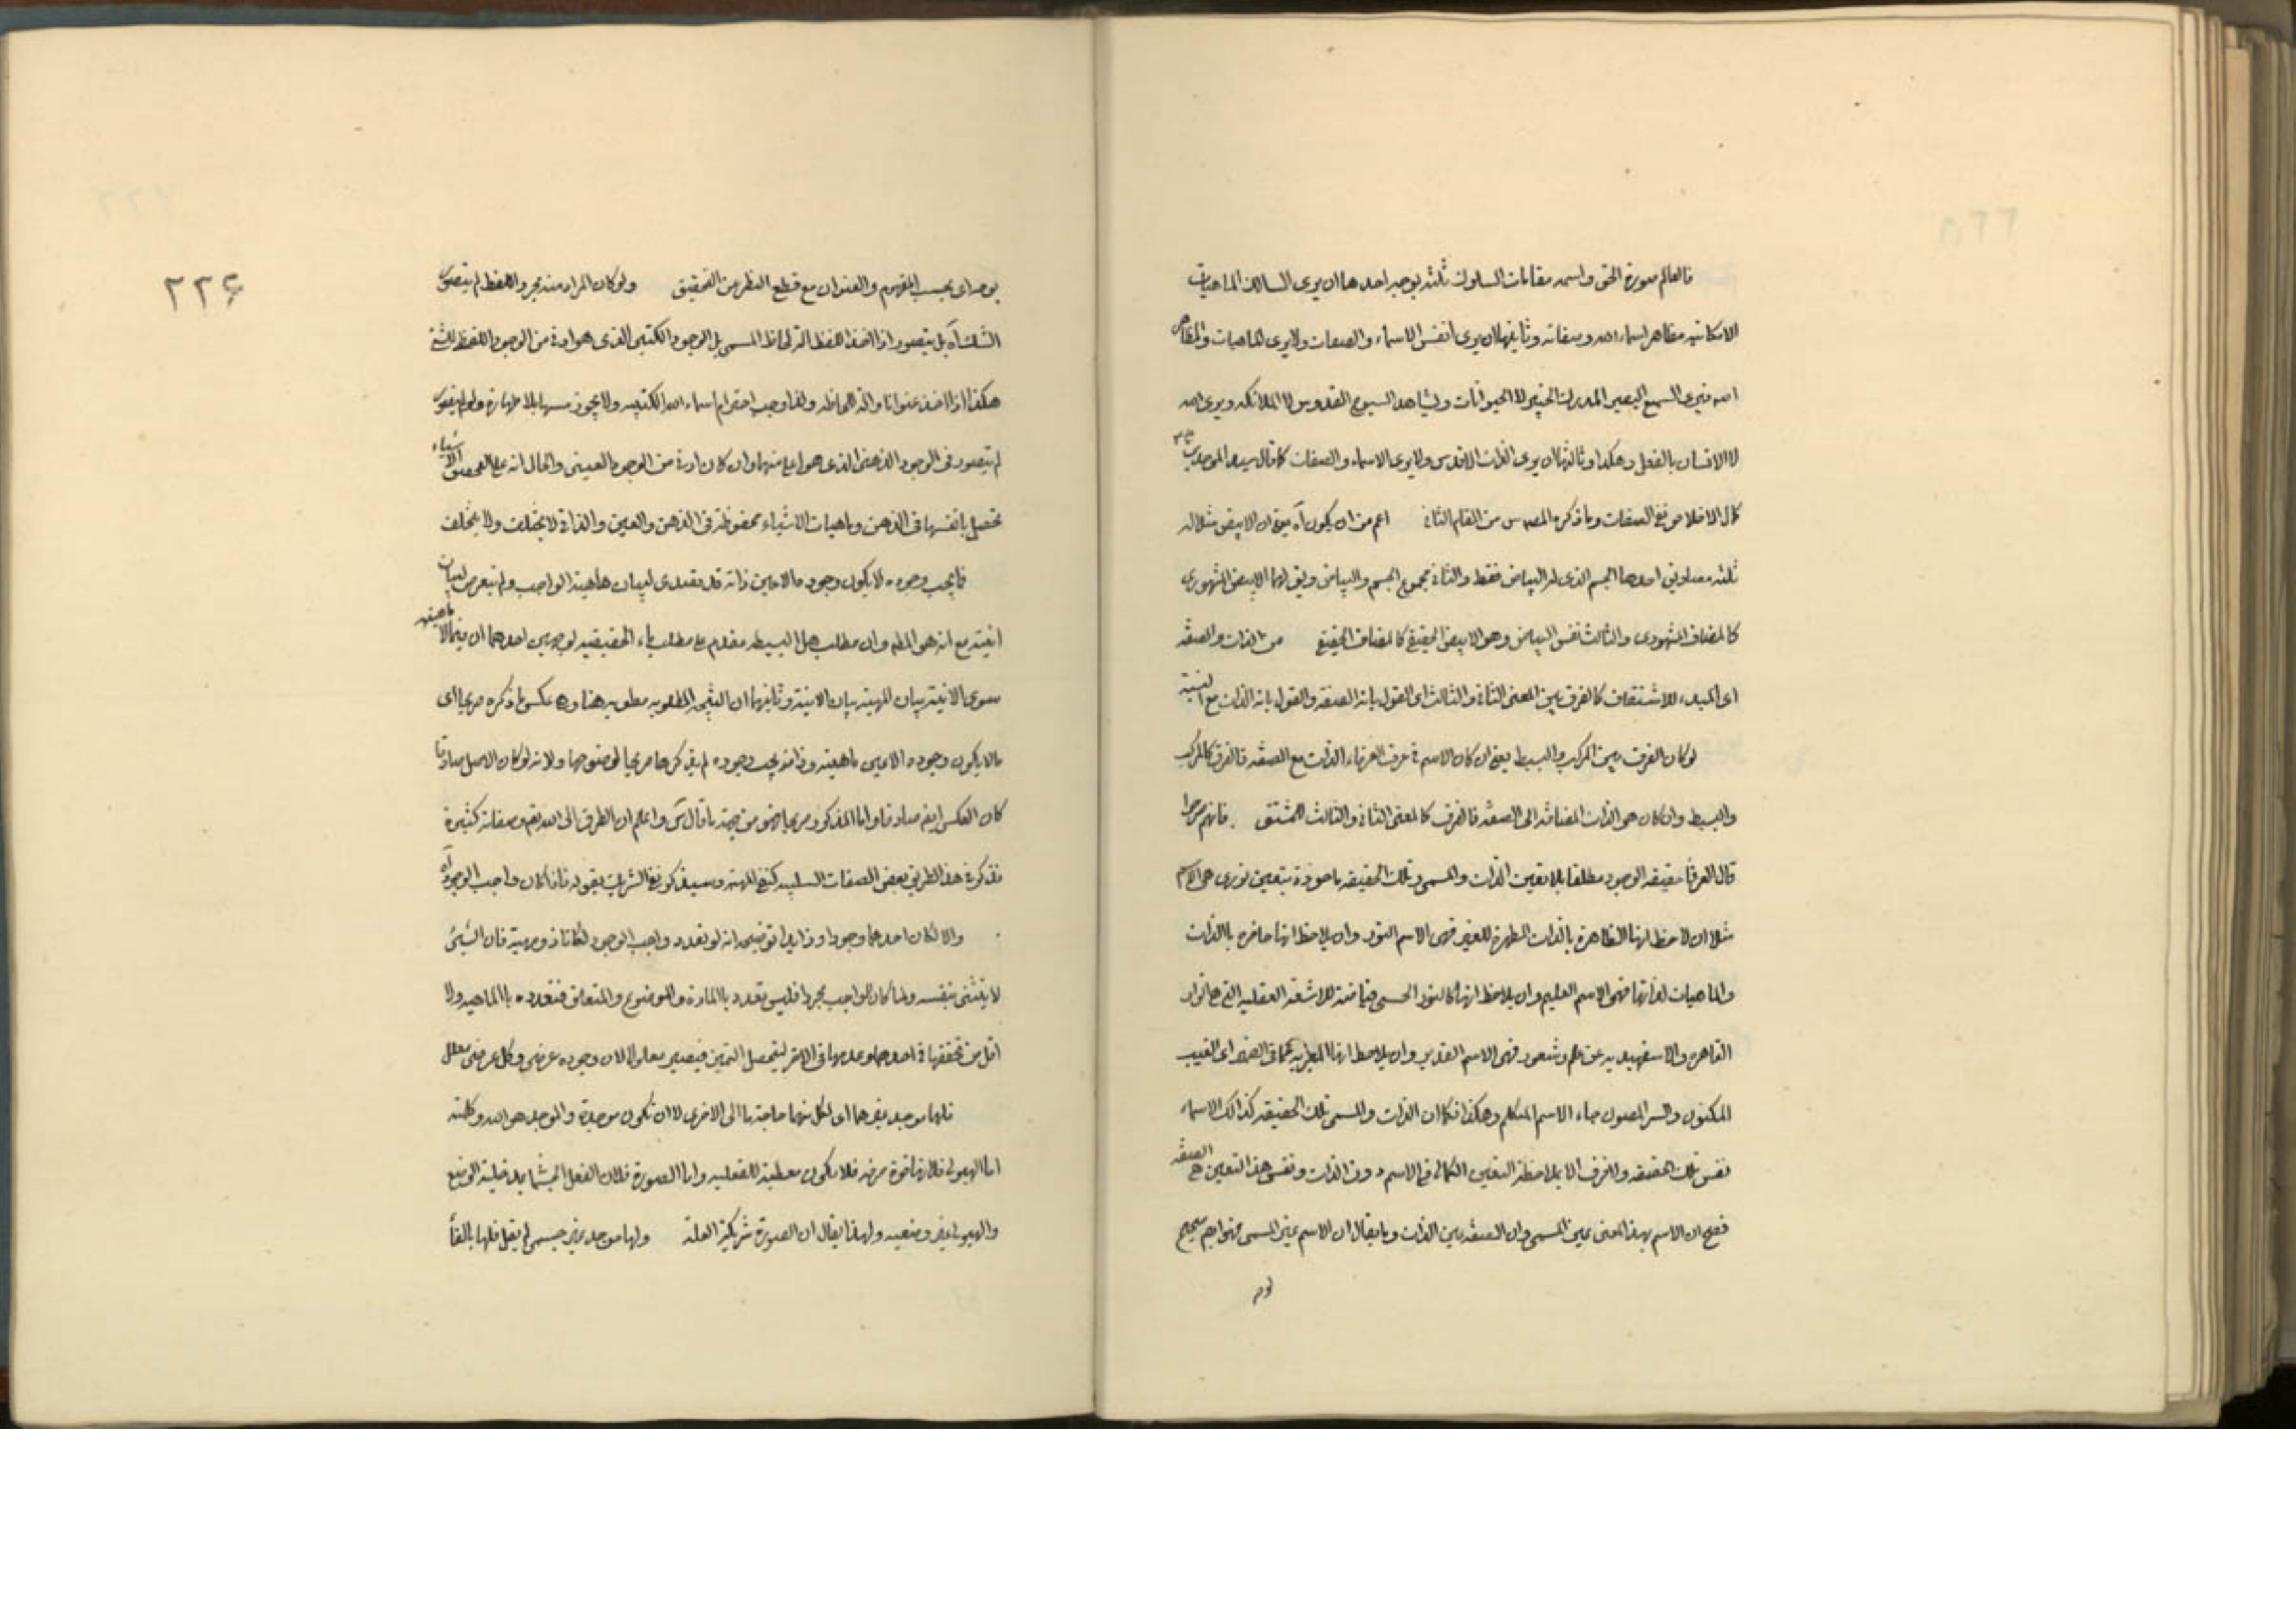 فالعالم صورة الحق واسمه مقامات السلوك ثلثة بوجه احدها ان يرى السالك الماهيات
الامكانيه مظاهر اسماء الله وصفاته وثانيها ان يرى انفس الاسماء والصفات ولا يرى الماهيات والمظاهر
فيرى السميع البصير المدرك الخبير لا الحيوانات ويشاهد السبوح القدوس لا الملائكه ويرى الله
لا الانسان بالفعل وهكذا وثالثها ان يرى الذات الاقدس ولا يرى الاسماء والصفات كما قال سيد الموحدين
كمال الاخلاص نفى الصفات وما ذكره المصه س من المقام الثانى اعم من ان يكون آه يعنى ان الابيض مثلا له
ثلثه معان احدها الجسم الذى له البياض فقط والثانى مجموع الجسم والبياض ويق لهما الابيض المشهورى
كالمضاف المشهورى والثالث نفس البياض وهو الابيض الحقيقى كالمضاف الحقيقى من الذات والصفة
اى المبدء للاشتقاق كالفرق بين المعنى الثانى والثالث اى القول بانه الصفة والقول بانه الذات مع النسبة
لو كان الفرق بين المركب والبسيط يعنى ان كان الاسم فى عرف العرفاء الذات مع الصفة فالفرق كالمركب
والبسيط وان كان هو الذات المضافة الى الصفة فالفرق كالمعنى الثانى والثالث للمشتق فانهم صرحوا
قال العرفاء حقيقه الوجود مطلقا بلا تعين الذات والمسمى وتلك الحقيقه ماخوذة بتعين نورى هى الاسم
مثلا ان لاحظ انها الظاهرة بالذات المظهرة للغير فهى الاسم النور وان يلاحظ انها حاضره بالذات
والماهيات لذاتها فهى الاسم العليم وان يلاحظ انها كالنور الحسى فياضة للاشعة العقليه التى هى انوار
القاهره والاسفهبديه عن علم وشعور فهى الاسم القدير وان يلاحظ انها المعربه عما فى الضمير اى الغيب
المكنون والسر المصون جاء الاسم المتكلم وهكذا فكما ان الذات والمسمى تلك الحقيقه كذلك الاسماء
نفس تلك الحقيقه والفرق الا بملاحظة التعين الكمالى فى الاسم دون الذات ونفس هذا التعين هى الصفة
فصح ان الاسم بهذا المعنى عين المسمى وان الصفة عين الذات وما يقال ان الاسم عين المسمى فهو ايضا صحيح
بوجه اى بحسب المفهوم والعنوان مع قطع النظر عن التحقيق ولو كان المراد منه مجرد اللفظ لم يتصور
الشك آه بل يتصور اذا اخذ اللفظ الة لحاظ المسمى بل الوجود الكتبى الذى هو ادون من الوجود اللفظى للشئ
هكذا اذا اخذ عنوانا والة للحاظه ولذا وجب احترام اسماء الله الكتبيه ولا يجوز مسها بلا طهارة ولو لم يتصور
لم يتصور فى الوجود الذهنى الذى هو اعلى منهما وان كان ادون من الوجود العينى والحال انه على التحقيق الاشياء
تحصل بانفسها فى الذهن وماهيات الاشياء محفوظة فى الذهن والعين والذاتى لا يختلف ولا يتخلف
فما يجب وجوده لا يكون وجوده الا عين ذاته قد تصدى لبيان ماهية الواجب ولم يتعرض لبيان
انيته مع انه هو المطلب وان مطلب هل البسيطه مقدم على مطلب ماء الحقيقيه لوجهين احدهما ان فيما لا ماهية له
سوى الانية بيان المهية بيان الانية وثانيهما ان النتيجه المطلوبه مطويه هنا وهى عكس ما ذكره صريحا اى
ما لا يكون وجوده الا عين ماهيته وذاته يجب وجوده لم يذكرها صريحا لوضوحها ولانه لو كان الاصل صادقا
كان العكس ايض صادقا واما المذكور صريحا فهو من جهة ما قال س واعلم ان الطرق الى الله تع وصفاته كثيرة
فذكر فى هذا الطريق بعض الصفات السلبيه كنفى المهية وسيذكر نفى الشريك بقوله فاذا كان واجب الوجود آه
والا لكان احدهما وجودا وزايدا توضيحه انه لو تعدد واجب الوجود لكانا ذوى مهية فان الشئ
لا يتثنى بنفسه ولما كان الواجب مجردا فليس تعدده بالمادة والموضوع والمتعلق فتعدده بالماهيه ولا
اقل من تحققها فى احدهما وعدمها فى الاخر ليتحصل التميز فيصير معلولا لان وجوده عرضى وكل عرضى معلل
فلهما موجد غيرهما اى لكل منهما حاجة ما الى الاخرى لا ان تكون موجدة والموجد هو الله وكلمته
اما الهيولى فلانها قوة صرفه فلا يكون معطية للفعليه واما الصورة فلان الفعل الجسمانى بمدخلية الوضع
والهيولى غير وضعيه ولهذا يقال ان الصورة شريكة العلة ولهما موجد غير جسمى لم يقل فلها بالفاء
لوم
٢٢۶